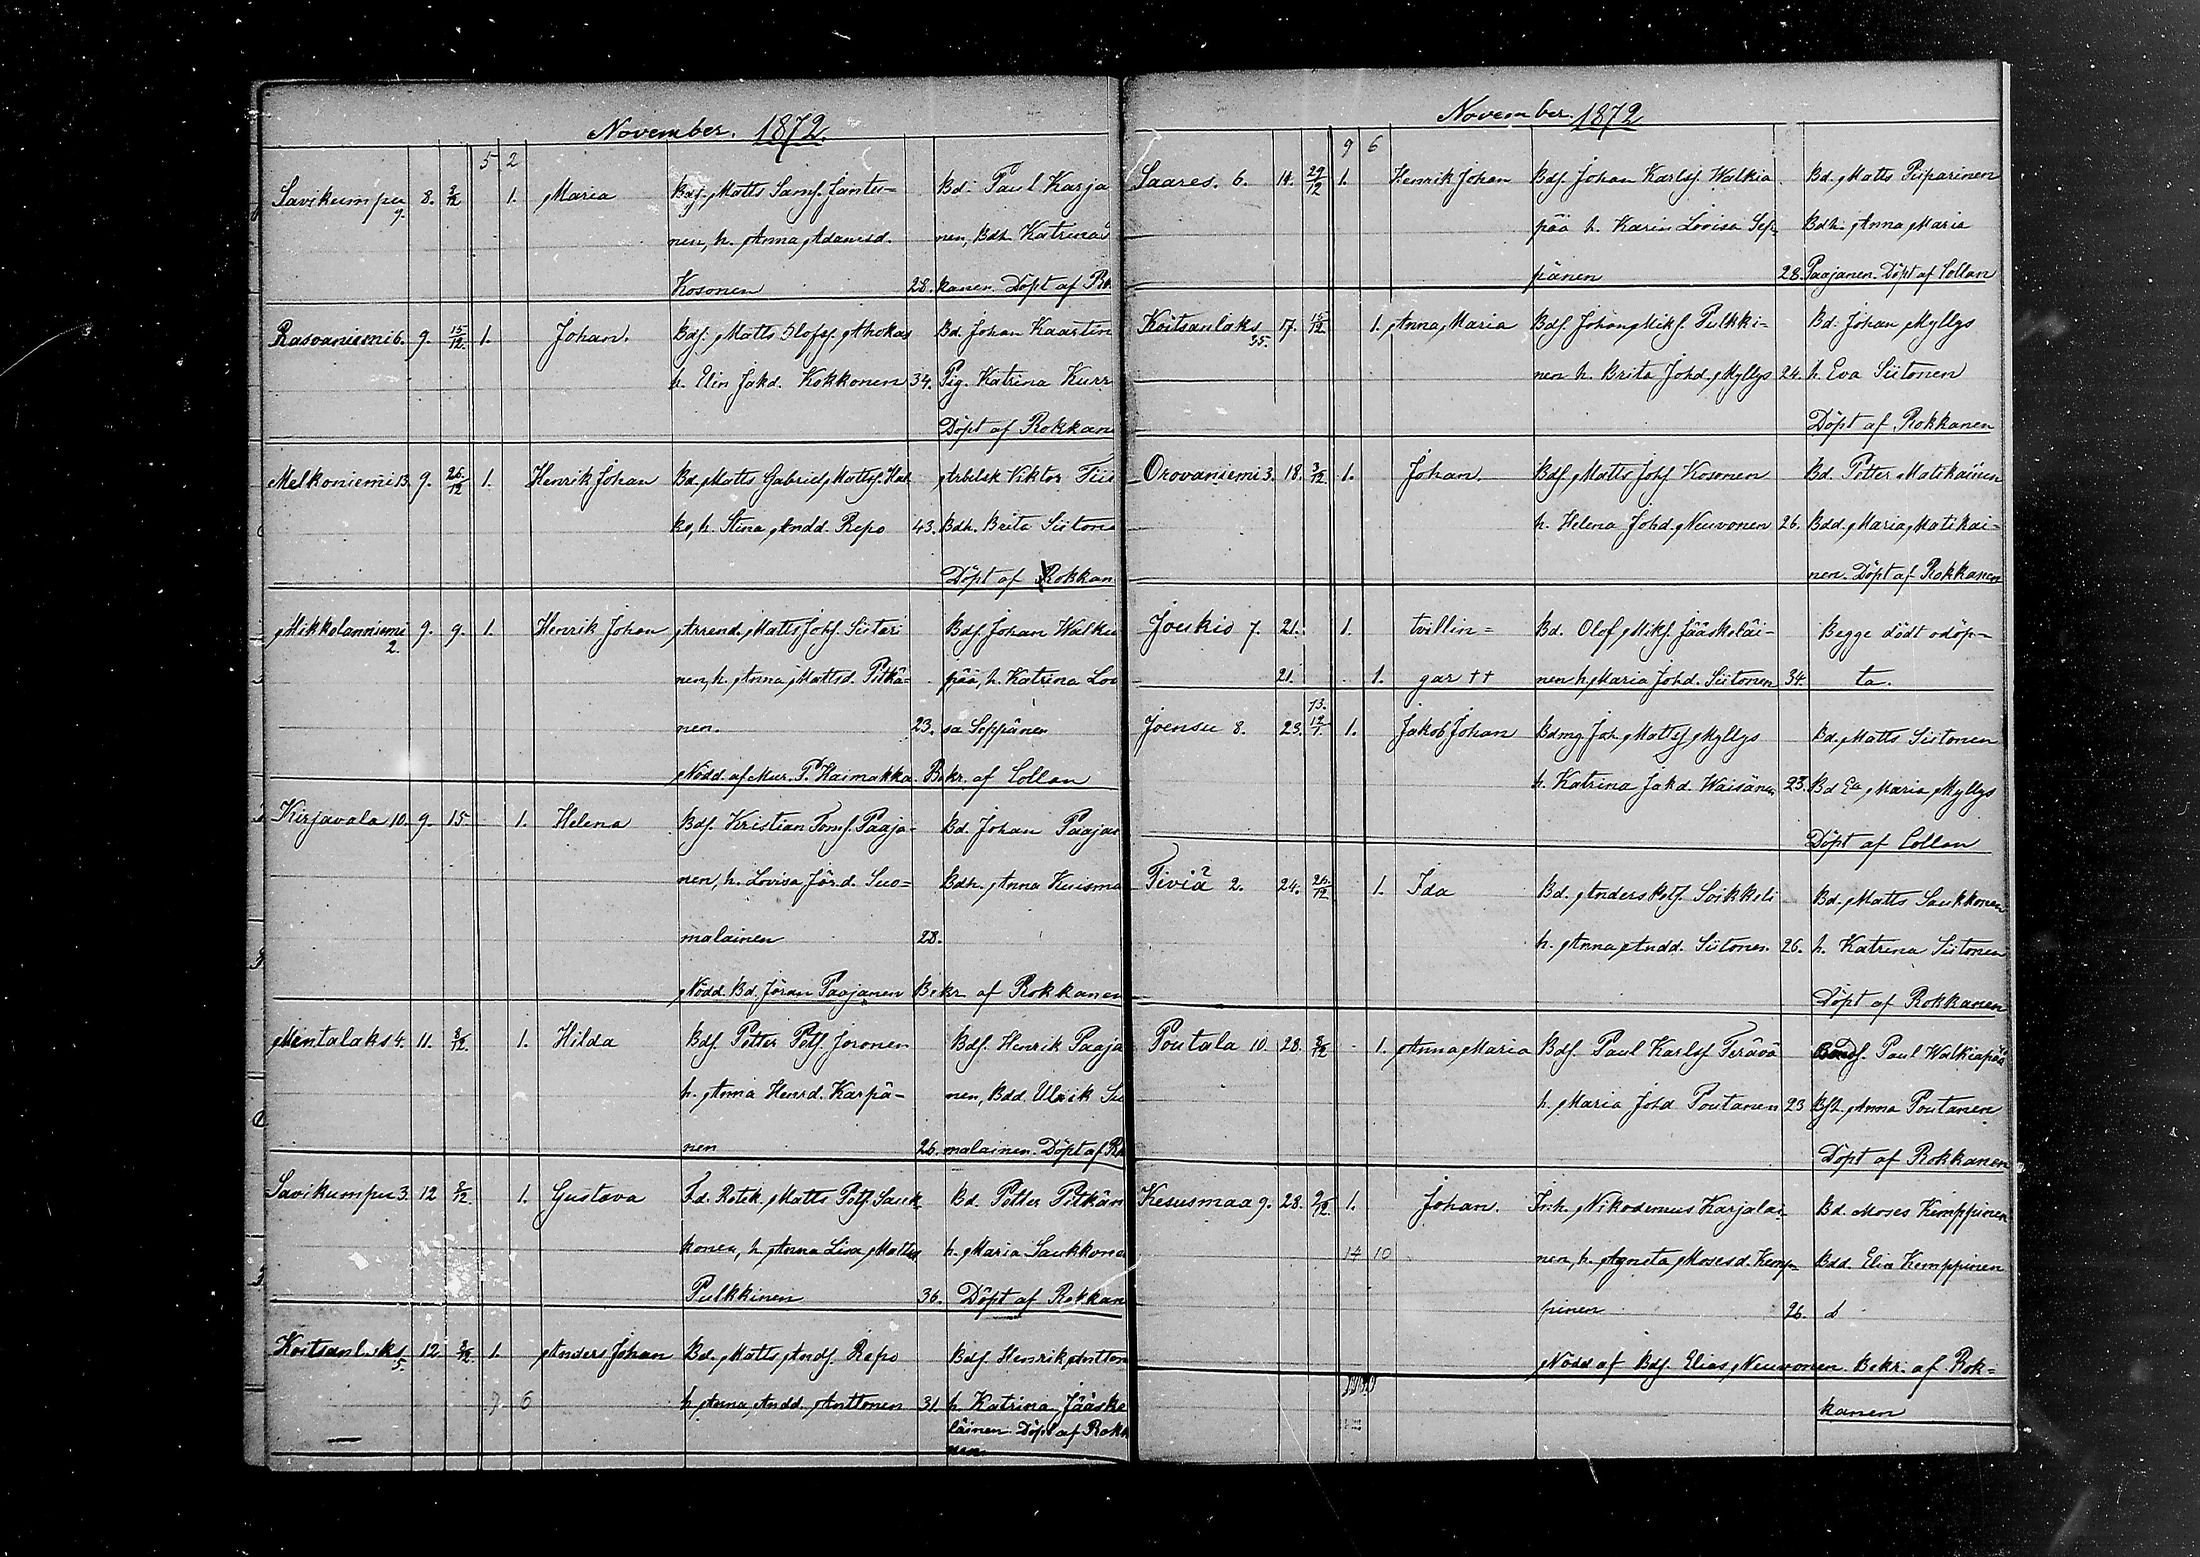 November. 1872.
5 2
Savikumpu 9. 8. 3/12 1. Maria Bdf. Matts Samf. Jantu= Bd. Paul Karja
nen, h. Anna Adamsd. nen, Bdh. Katrina
Kosonen 28. kanen. Döpt af Ro
Rasvaniemi 6. 9. 15/12. 1. Johan. Bdf. Matts Olofsf. Ahokas Bd. Johan Kaartin
h. Elin Jakd. Kokkonen 34. Pig. Katrina Kurr
Döpt af Rokkane
Melkoniemi 13. 9. 26/12 1. Henrik Johan Bd. Matts Gabriel Mattsf. Hak Arbetsk Viktor Tiis
ko, h. Stina Andd. Repo 43. Bdh. Brita Siitone
Döpt af Rokkan
Mikkolanniemi 2. 9. 9. 1. Henrik Johan Arrend. Matts Johf. Siitari Bdf. Johan Walkia
nen, h. Anna Mattsd. Pitkä= pää, h. Katrina Lov
nen. 23. sa Seppänen
Nödd. af Mur. P. Haimakka. Bekr. af Collan
Kirjavala 10. 9. 15. 1. Helena Bdf. Kristian Tomf. Paaja- Bd. Johan Paajan
nen, h. Lovisa Jör.d. Suo= Bdh. Anna Kuisma
malainen 28.
Nödd. Bd. Jöran Paajanen Bekr af Rokkanen
Mentalaks 4. 11. 8/12. 1. Hilda Bdf. Petter Petf. Joronen Bdf. Henrik Paaja
h. Anna Henrd. Karpä- nen, Bdd. Ulrik Suo
nen 26. malainen. Döpt af Ro
Savikumpu 3. 12 8/12. 1. Gustava F.d. Rotek. Matts Petf. Sauk Bd. Petter Pitkän
konen, h. Anna Lisa Mattsd. h. Maria Saukkone
Pulkkinen 36. Döpt af Rokkan
Koitsanlaks 5. 12. 8/12. 1. Anders Johan Bd. Matts Andf. Repo Bdf. Henrik Antton
7 6 h. Anna Andd. Anttonen 31. h. Katrina Jääske
läinen Döpt af Rokk
nen.
November 1872
9 6
Saares. 6. 14. 29/12 1. Henrik Johan Bdf. Johan Karlsf. Walkia Bd. Matts Piiparinen
pää h. Karin Lovisa Sep- Bdh. Anna Maria
pänen 28. Paajanen. Döpt af Collan
Koitsanlaks 35. 17. 15/12 1. Anna Maria Bdf. Johan Mikf. Pulkki= Bd. Johan Myllys
nen h. Brita Johd. Myllys 24. h. Eva Siitonen
Döpt af Rokkanen
Orovaniemi 3. 18. 3/12 1. Johan. Bdf. Matts Johf Kosonen Bd. Petter Matikainen
h. Helena Johd. Neuvonen 26. Bdd. Maria Matikai=
nen. Döpt af Rokkanen
Joukio 7. 21. 1. tvillin= Bd. Olof Mikf. Jääskeläi- Begge dödt odöp=
21. 1. gar †† nen h. Maria Johd. Siitonen 34. ta.
13.
Joensu 8. 23. 12/1. 1. Jakob Johan Bdmg Joh. Mattsf. Myllys Bd. Matts Siitonen
h. Katrina Jakd. Waisänen 23. Bd Ea Maria Myllys
Döpt af Collan
Tiviä 2. 24. 26/12 1. Ida Bd. Anders Petf. Soikkeli Bd. Matts Saukkonen
h. Anna Andd. Siitonen. 26. h. Katrina Siitonen
Döpt af Rokkanen
Poutala 10. 28. 8/12 1. Anna Maria Bdf. Paul Karlsf Terävä Bondf. Paul Walkiapää
h. Maria Johd Poutanen 23 Bfh. Anna Poutanen
Döpt af Rokkanen
Kesusmaa 9. 28. 2/12. 1. Johan. Inh. Nikodemus Karjalai- Bd. Moses Kemppinen
14 10 nen, h. Agneta Mosesd. Kemp- Bdd. Elia Kemppinen
pinen 26.
Nödd af Bdf. Elias Neuvonen. Bekr. af Rok=
kanen